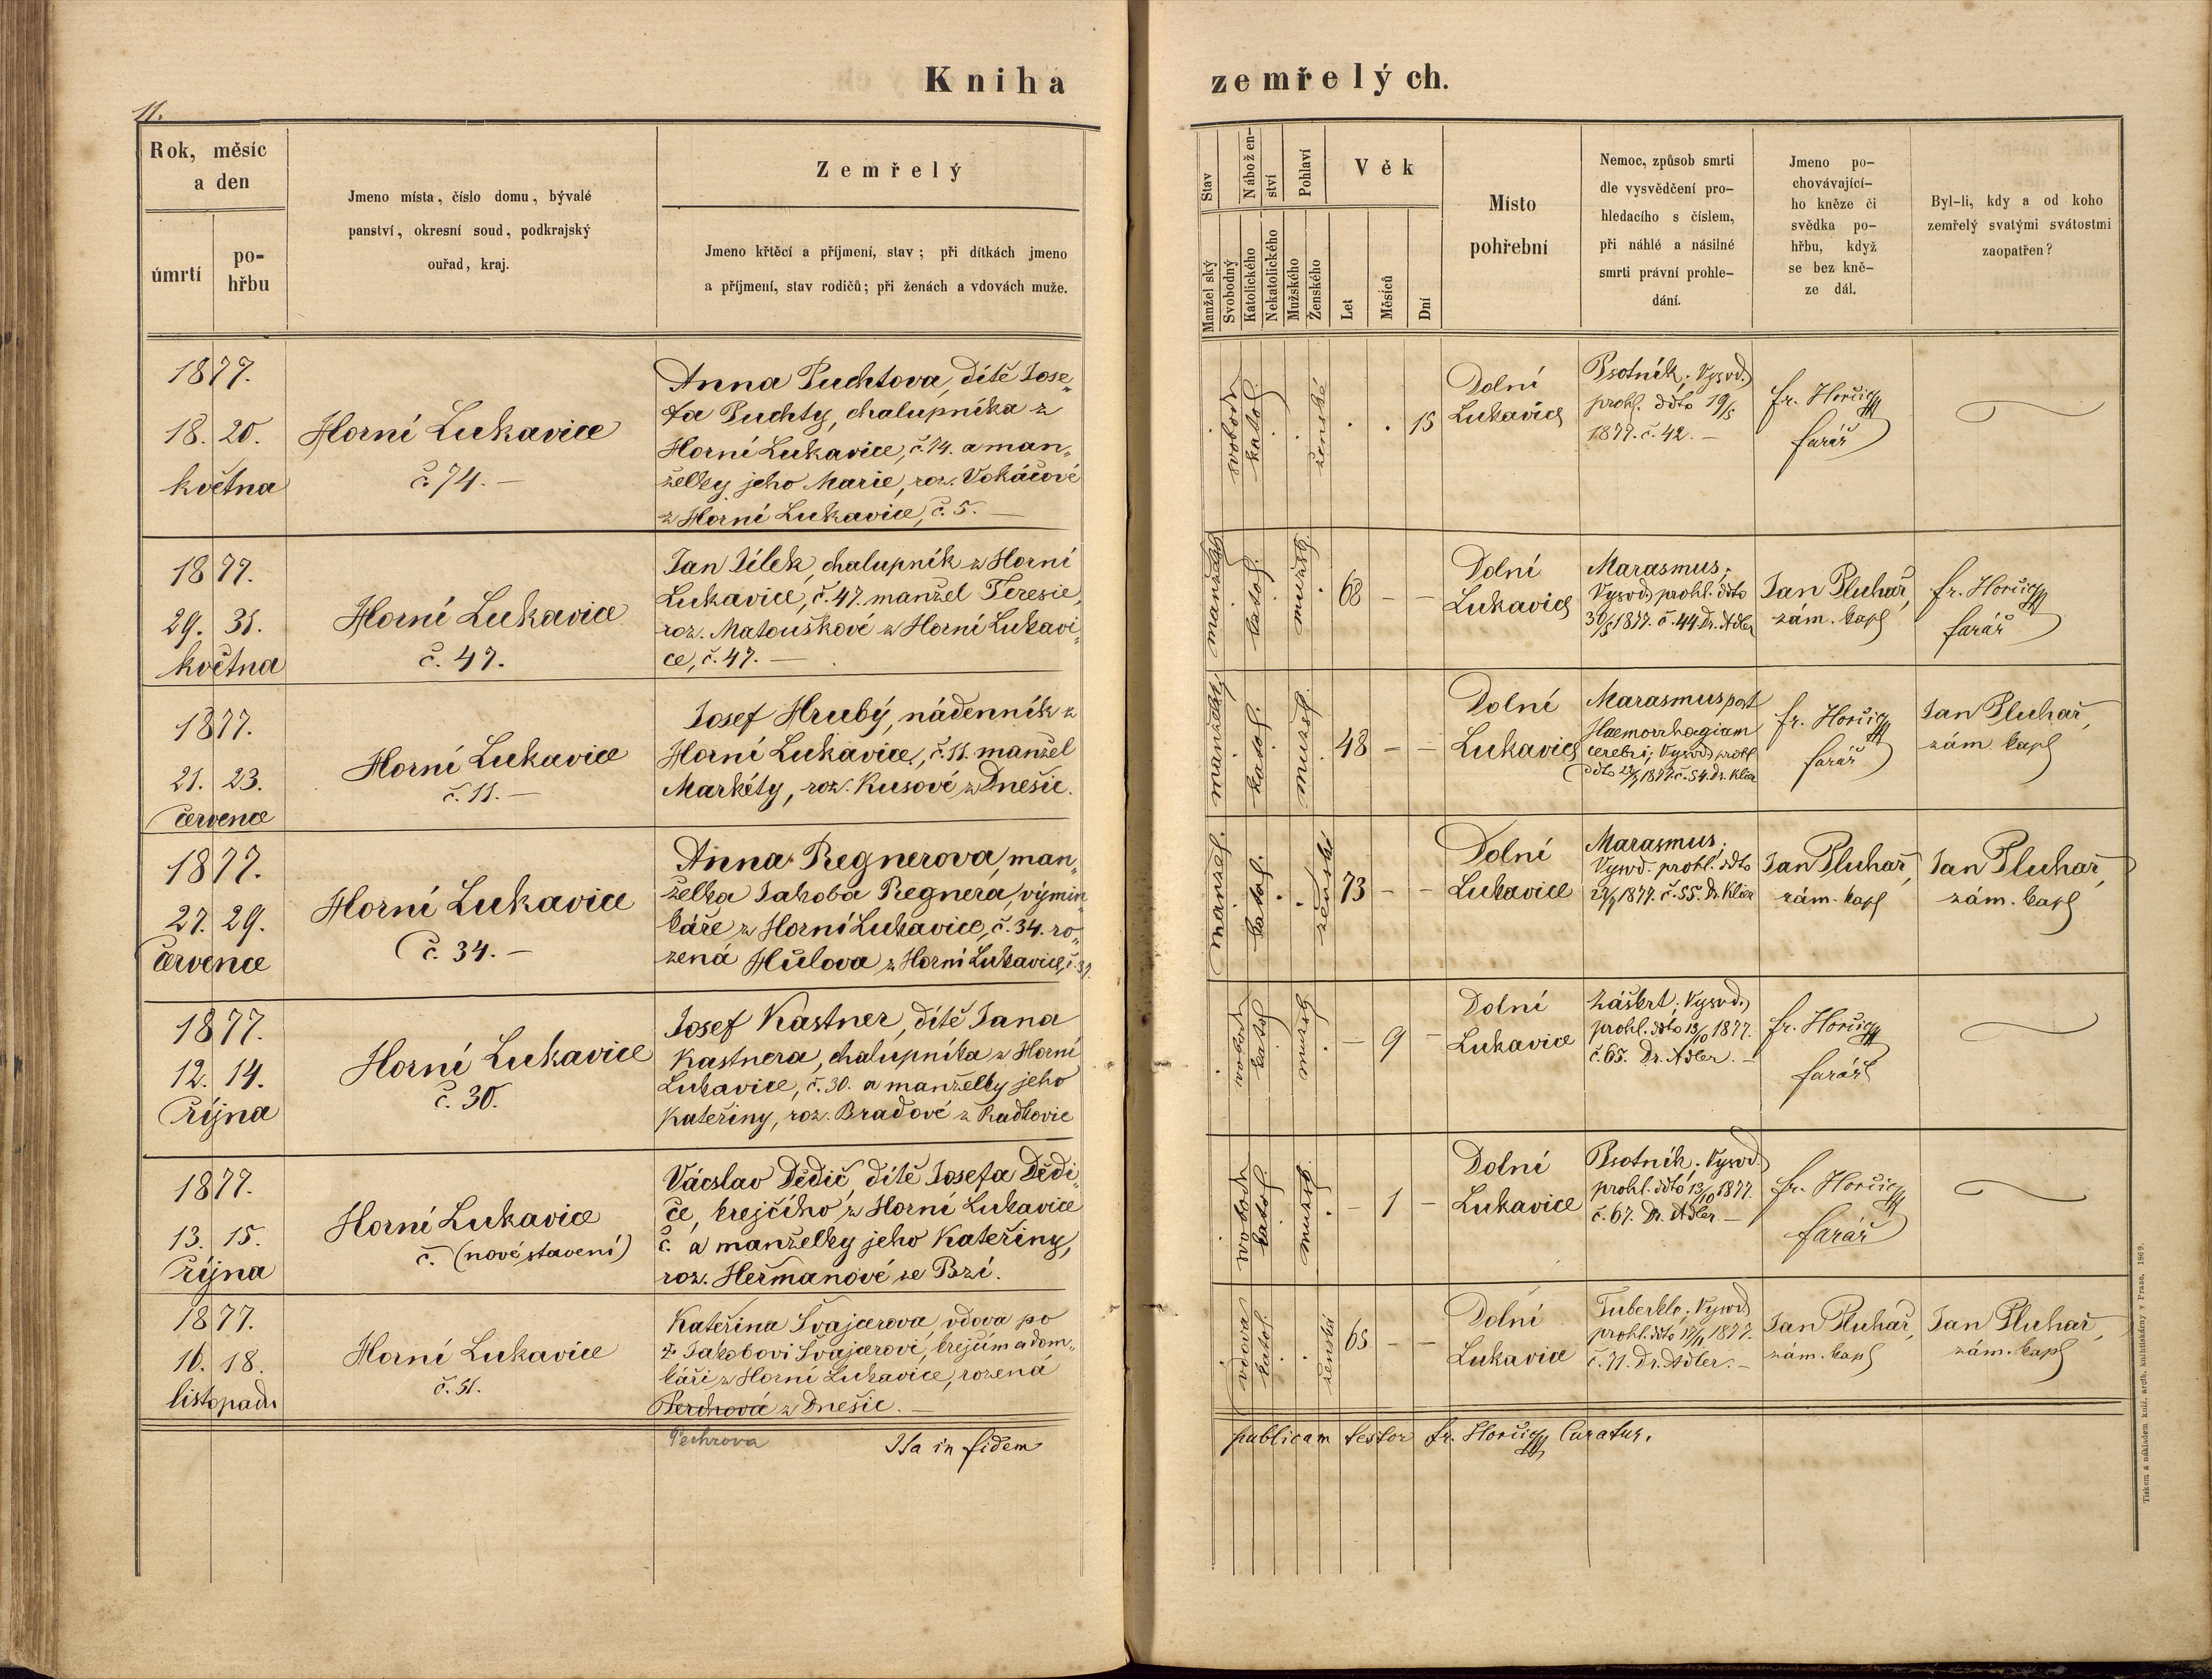 Kniha zemřelých.
11.
Rok, měsíc
a den
úmrtí
po-
hřbu
Jmeno místa, číslo domu, bývalé
panství, okresní soud, podkrajský
ouřad, kraj.
Zemřelý
Jmeno křtěcí a příjmení, stav; při dítkách jmeno
a příjmení, stav rodičů; při ženách a vdovách muže.
Stav
Manželský
Svobodný
Nábožen-
ství
Katolického
Nekatolického
Pohlaví
Mužského
Ženského
Věk
Let
Měsíců
Dní
Místo
pohřební
Nemoc, způsob smrti
dle vysvědčení pro-
hledacího s číslem,
při náhlé a násilné
smrti právní prohle-
dání.
Jmeno po-
chovávající-
ho kněze či
svědka po-
hřbu, když
se bez kně-
ze dál.
Byl-li, kdy a od koho
zemřelý svatými svátostmi
zaopatřen?
1877.
18. 20.
května
Horní Lukavice
č. 74. —
Anna Puchtova, dítě Jose„
fa Puchty, chalupníka z
Horní Lukavice, č. 74. a man„
želky jeho Marie, roz. Vokáčové
z Horní Lukavice, č. 5. —
svobod.
katol.
ženské
. . 15
Dolní
Lukavice
Psotník; Vysvd.
prohl. ddto 19/5
1877. č. 42. —
fr. Horčic
farář
1877.
29. 31.
května
Horní Lukavice
č. 47.
Jan Jílek, chalupník z Horní
Lukavice, č. 47. manžel Teresie,
roz. Matouškové z Horní Lukavi„
ce, č. 47. —
manžel.
katol.
mužsk.
68 – –
Dolní
Lukavice
Marasmus;
Vysvd. prohl. ddto
30/5 1877. č. 44. Dr. Adler
Jan Pluhař,
zám. kapl
fr. Horčic
farář
1877.
21. 23.
července
Horní Lukavice
č. 11. —
Josef Hrubý, nádenník z
Horní Lukavice, č. 11. manžel
Markéty, roz. Kusové z Dnešic.
manžel.
katol.
mužsk.
48 – –
Dolní
Lukavice
Marasmus post
Haemorrhagiam
cerebri; Vysvd. prohl
ddto 22/7 1877. č. 54. Dr. Klír
fr. Horčic
farář
Jan Pluhař,
zám. kapl
1877.
27. 29.
července
Horní Lukavice
č. 34. —
Anna Regnerova, man„
želka Jakoba Regnera, výmin„
káře z Horní Lukavice, č. 34. ro„
zená Hůlova z Horní Lukavice,
manžel.
katol.
ženské
73 – –
Dolní
Lukavice
Marasmus;
Vysvd. prohl. ddto
27/7 1877. č. 55. Dr. Klír
Jan Pluhař,
zám. kapl
Jan Pluhař,
zám. kapl
1877.
12. 14.
října
Horní Lukavice
č. 30.
Josef Kastner, dítě Jana
Kastnera, chalupníka z Horní
Lukavice, č. 30. a manželky jeho
Kateřiny, roz. Bradové z Radkovic
svobod.
katol.
mužsk.
– 9 –
Dolní
Lukavice
Záškrt; Vysvd.
prohl. ddto 13/10 1877.
č. 65. Dr. Adler. —
fr. Horčic
farář
1877.
13. 15.
října
Horní Lukavice
č. (nové stavení)
Václav Dědič, dítě Josefa Dědi„
če, krejčího z Horní Lukavice
č. a manželky jeho Kateřiny,
roz. Heřmanové ze Brzí.
svobod.
katol.
mužsk.
– 1 –
Dolní
Lukavice
Psotník; Vysvd.
prohl. ddto 13/10 1877.
č. 67. Dr. Adler —
fr. Horčic
farář
1877.
16. 18.
listopadu
Horní Lukavice
č. 51.
Kateřina Švajcrova, vdova po
† Jakobovi Švajcrovi, krejčím a dom„
káři z Horní Lukavice, rozená
Perchová z Dnešic. —
vdova
katol.
ženské
65 – –
Dolní
Lukavice
Tuberkle; Vysvd
prohl. ddto 17/11 1877.
č. 71. Dr. Adler. —
Jan Pluhař,
zám. kapl
Jan Pluhař,
zám. kapl
Pechrova
Ita in fidem publicam testor fr. Horčic Curatus.
Tiskem a nákladem kníž. arcib. knihtiskárny v Praze. 1869.